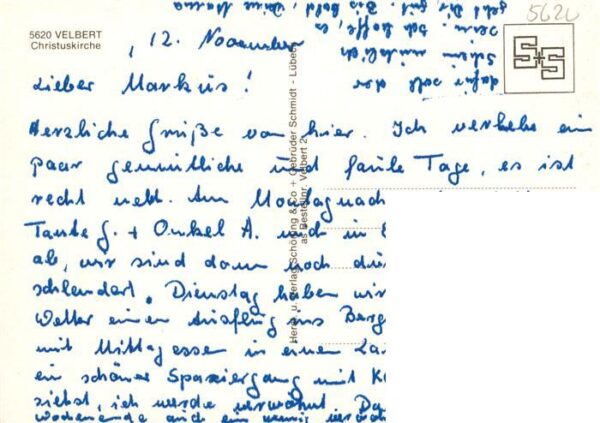 5620 VELBERT
Christuskirche
5620
S+S
12. November
Lieber Markus!
Herzliche Grüße von hier. Ich verlebe ein
paar gemütliche und faule Tage, es ist
recht nett. Am Montagnach
Tante G. + Onkel A. und in
ab, wir sind dann noch
schlendert. Dienstag haben wir
Wetter einen Ausflug ins Berg
mit Mittagessen in einem La
ein schöner Spaziergang mit K
siehst, ich werde verwöhnt. Da
Wochenende auch ein wenig
dafür soll der
Schein nützlich
sein. Ich hoffe, es
geht Dir gut. Bis bald, Deine Mama
Herst. u. Verlag Schöning & Co + Gebrüder Schmidt - Lübeck
as Bestellnr. Velbert 2